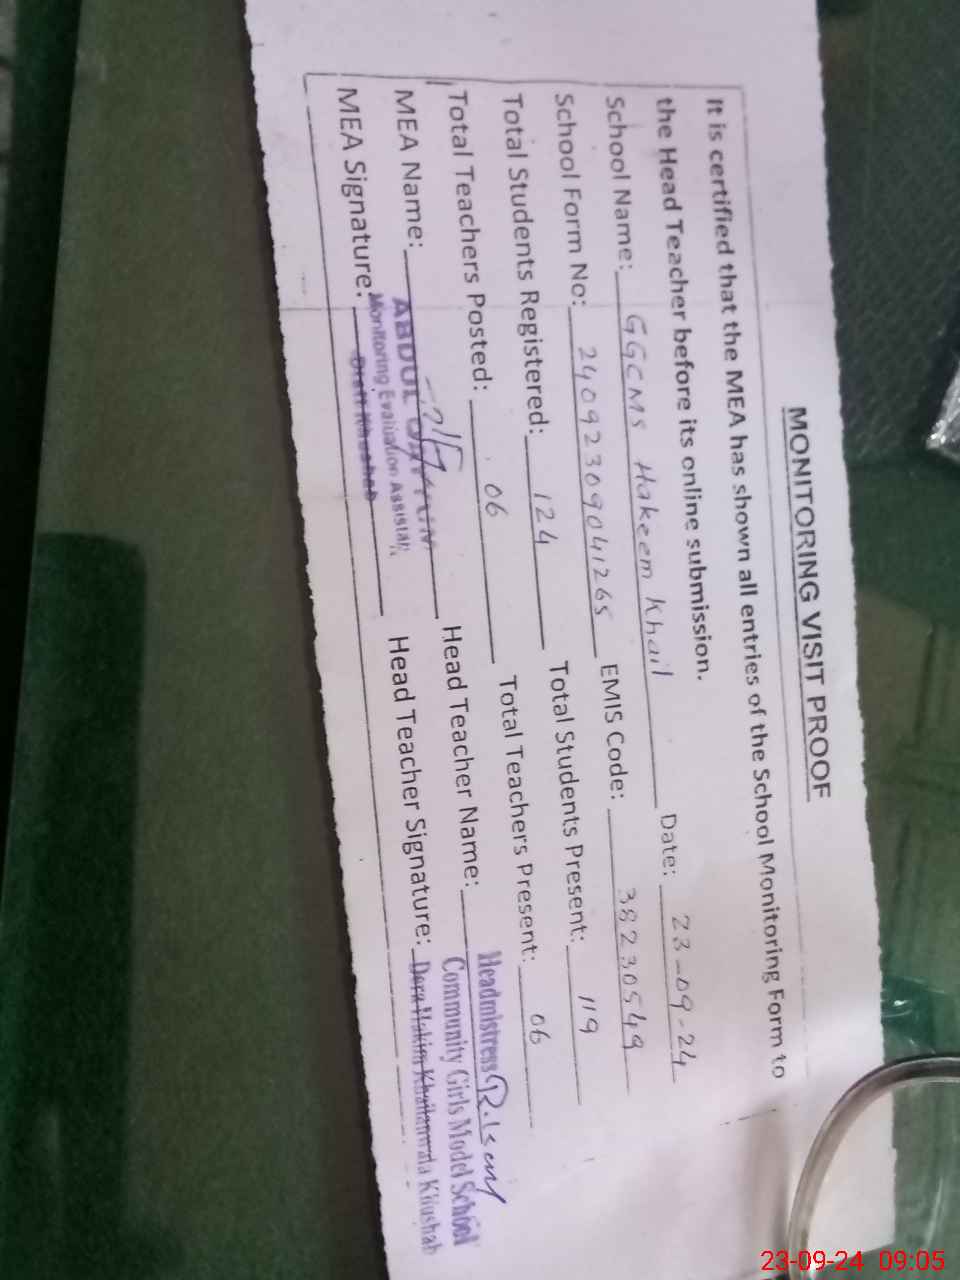 MONITORING VISIT PROOF
It is certified that the MEA has shown all entries of the School Monitoring Form to
the Head Teacher before its online submission.
School Name: GGCMS Hakeem Khail Date: 23-09-24
School Form No: 24092309041265 EMIS Code: 38230549
Total Students Registered: 124 Total Students Present: 119
Total Teachers Posted: 06 Total Teachers Present: 06
MEA Name: ABDUL Head Teacher Name: Headmistress
Monitoring Evaluation Assistan Community Girls Model School
MEA Signature: Head Teacher Signature: Khushab
23-09-24 09:05